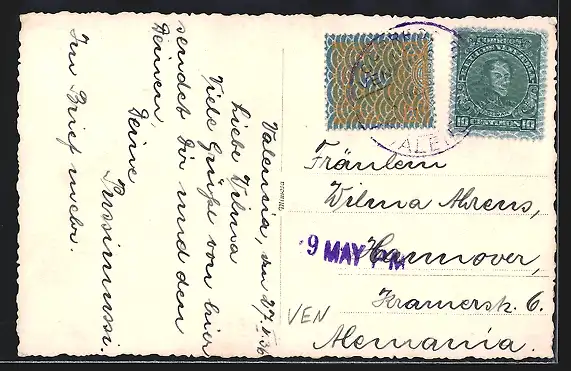 Valencia, den 27.V.36
Liebe Vilma
Viele Grüße von hier
sendet Dir und den
Deinen,
Deine
Im Brief mehr.
CORREOS
10 CENTIMOS 10
Fräulein
Vilma Ahrens,
Hannover,
9 MAY PM
Kramerstr. 6.
Alemania.
VEN